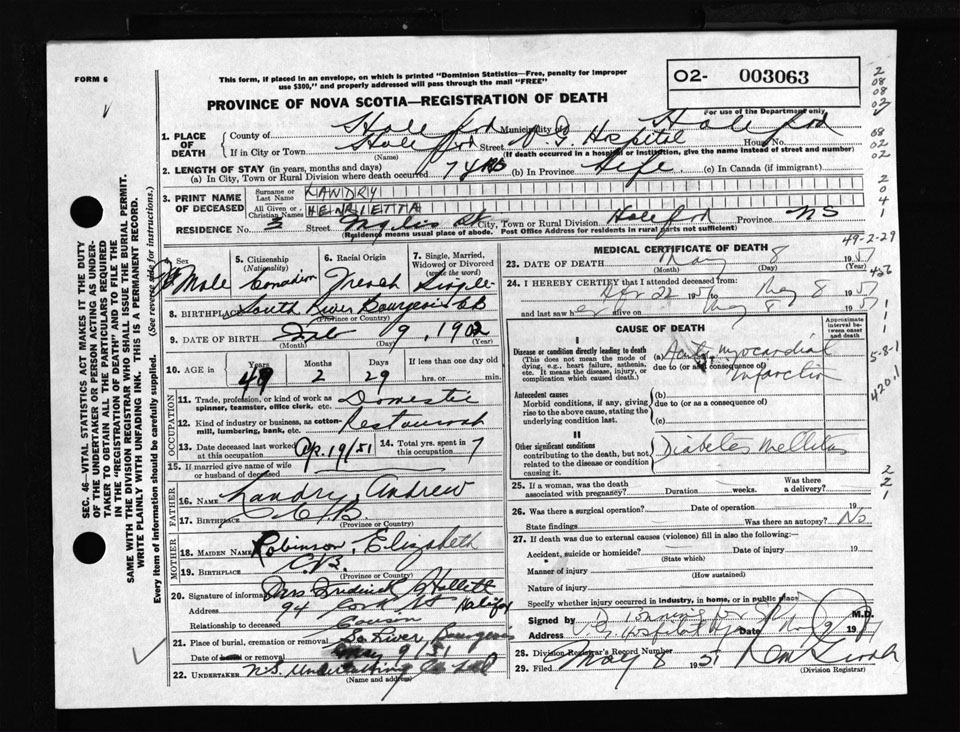 FORM 6
This form, if placed in an envelope, on which is printed "Dominion Statistics—Free, penalty for improper
use $300," and properly addressed will pass through the mail "FREE"
PROVINCE OF NOVA SCOTIA—REGISTRATION OF DEATH
O2- 003063
For use of the Department only
1. PLACE OF DEATH
County of Municipality of
If in City or Town Street V. G. Hospital House No.
(Name) (If death occurred in a hospital or institution, give the name instead of street and number)
2. LENGTH OF STAY (in years, months and days)
(a) In City, Town or Rural Division where death occurred 7 yrs (b) In Province Life (c) In Canada (if immigrant)
3. PRINT NAME OF DECEASED
Surname or Last Name LANDRY
All Given or Christian Names HENRIETTA
RESIDENCE No. 3 Street St. City, Town or Rural Division Province NS
(Residence means usual place of abode. Post Office Address for residents in rural parts not sufficient)
SEC. 46—VITAL STATISTICS ACT MAKES IT THE DUTY
OF THE UNDERTAKER OR PERSON ACTING AS UNDER-
TAKER TO OBTAIN ALL THE PARTICULARS REQUIRED
IN THE "REGISTRATION OF DEATH" AND TO FILE THE
SAME WITH THE DIVISION REGISTRAR WHO SHALL ISSUE THE BURIAL PERMIT.
WRITE PLAINLY WITH UNFADING INK. THIS IS A PERMANENT RECORD.
Every item of Information should be carefully supplied. (See reverse side for instructions.)
4. Sex Female
5. Citizenship (Nationality) Canadian
6. Racial Origin French
7. Single, Married, Widowed or Divorced (write the word) Single
8. BIRTHPLACE South River Bourgeois CB
(Province or Country)
9. DATE OF BIRTH Feb 9, 1902
(Month) (Day) (Year)
10. AGE in Years Months Days If less than one day old
49 2 29 hrs. or min.
OCCUPATION
11. Trade, profession, or kind of work as spinner, teamster, office clerk, etc. Domestic
12. Kind of industry or business, as cotton-mill, lumbering, bank, etc. Restaurant
13. Date deceased last worked at this occupation Ap. 19/51
14. Total yrs. spent in this occupation 7
15. If married give name of wife or husband of deceased
FATHER
16. NAME Landry, Andrew
17. BIRTHPLACE C.B.
(Province or Country)
MOTHER
18. MAIDEN NAME Robinson, Elizabeth
19. BIRTHPLACE C.B.
(Province or Country)
20. Signature of informant Mrs Fredrick Hallett
Address 94 Cork St Halifax
Relationship to deceased Cousin
21. Place of burial, cremation or removal So River Bourgeois
Date of burial or removal May 9/51
22. UNDERTAKER N.S. Undertaking Co Ltd
(Name and address)
MEDICAL CERTIFICATE OF DEATH
23. DATE OF DEATH May 8 1951
(Month) (Day) (Year)
24. I HEREBY CERTIFY that I attended deceased from:
Apr 22 1951 to May 8 1951
and last saw her alive on May 8 1951
CAUSE OF DEATH
Approximate interval between onset and death
I
Disease or condition directly leading to death
(This does not mean the mode of dying, e.g., heart failure, asthenia, etc. It means the disease, injury, or complication which caused death.)
(a) Acute myocardial
due to (or as consequence of)
infarction
Antecedent causes
Morbid conditions, if any, giving rise to the above cause, stating the underlying condition last.
(b)
due to (or as a consequence of)
(c)
II
Other significant conditions contributing to the death, but not related to the disease or condition causing it.
Diabetes mellitus
25. If a woman, was the death associated with pregnancy? Duration weeks. Was there a delivery?
26. Was there a surgical operation? Date of operation 19
State findings Was there an autopsy? No
27. If death was due to external causes (violence) fill in also the following:—
Accident, suicide or homicide? Date of injury 19
(State which)
Manner of injury
(How sustained)
Nature of injury
Specify whether injury occurred in industry, in home, or in public place
Signed by M.D.
Address V. G. Hospital Date May 9 1951
28. Division Registrar's Record Number
29. Filed May 8 1951
(Division Registrar)
2
08
08
02
68
02
02
2
0
4
1
49-2-29
456
1
1
1
5-8-1
420.1
2
2
1